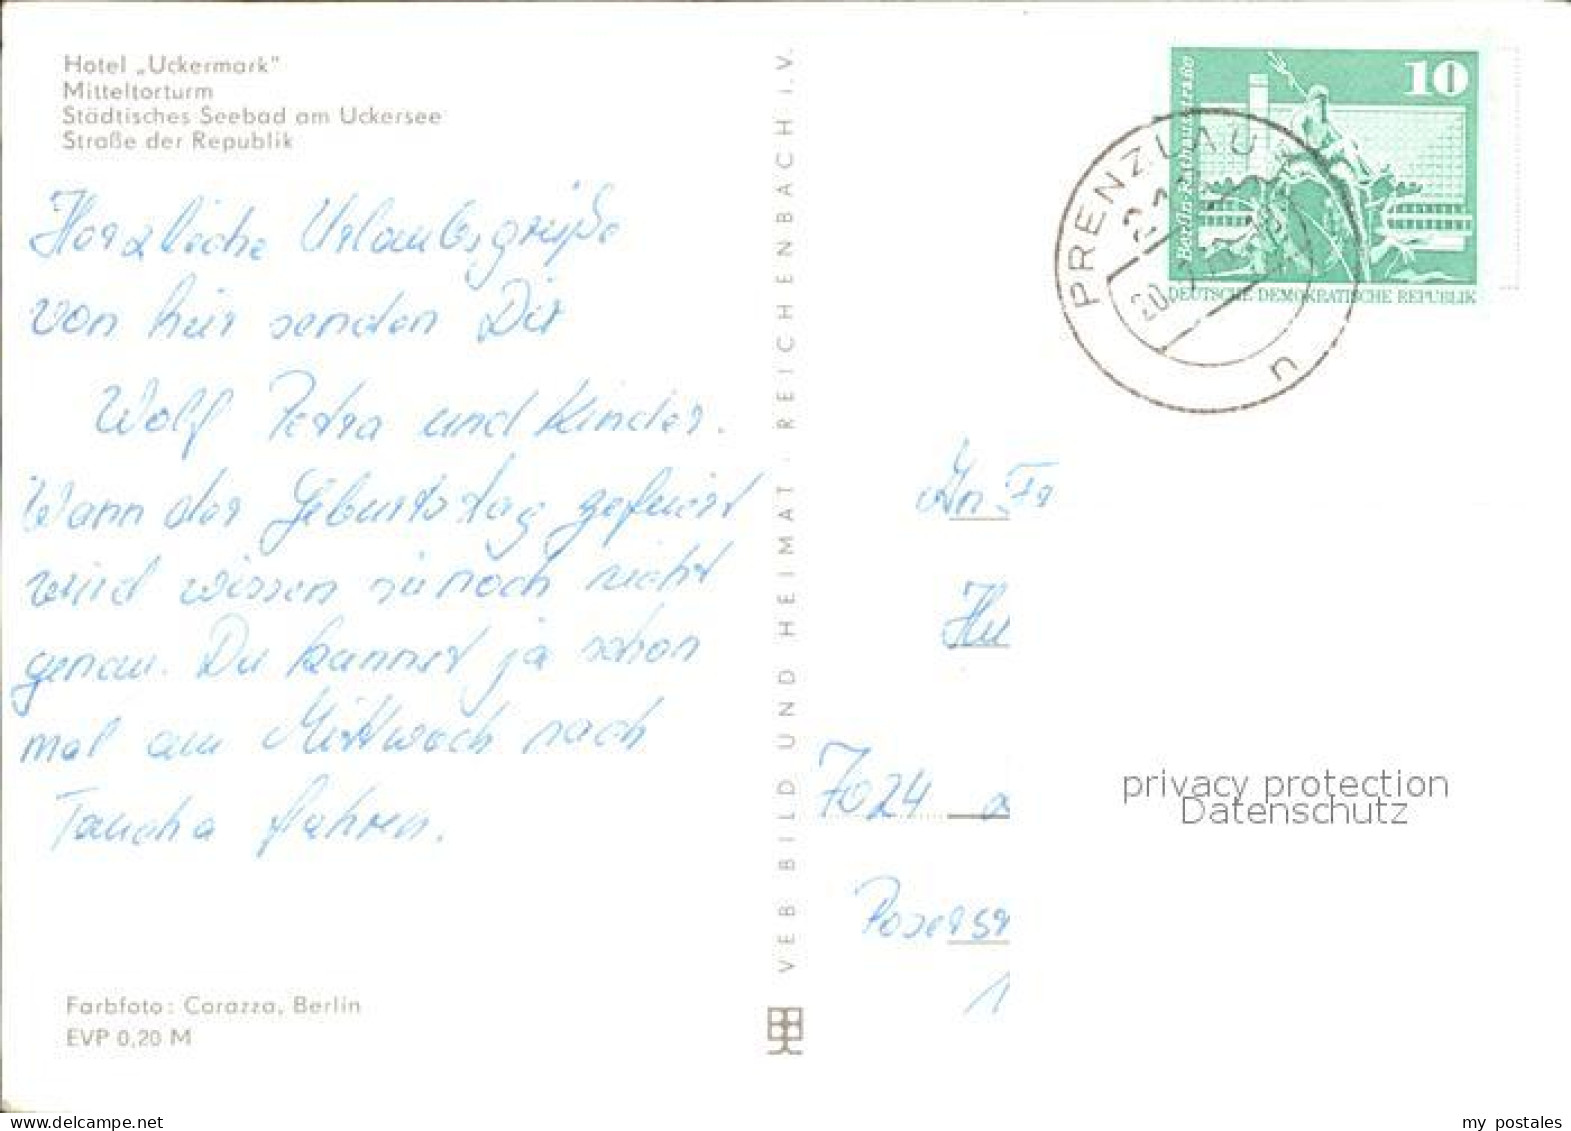 Hotel „Uckermark"
Mitteltorturm
Städtisches Seebad am Uckersee
Straße der Republik
Herzliche Urlaubsgrüße
von hier senden Dir
Wolf Petra und Kinder.
Wann der Geburtstag gefeiert
wird wissen wir noch nicht
genau. Du kannst ja schon
mal am Mittwoch nach
Taucha fahren.
Farbfoto: Carazza, Berlin
EVP 0,20 M
VEB BILD UND HEIMAT · REICHENBACH I.V.
10
Berlin-Rathausstraße
DEUTSCHE DEMOKRATISCHE REPUBLIK
PRENZLAU
n
An Fr
7024
1
privacy protection
Datenschutz
my postales